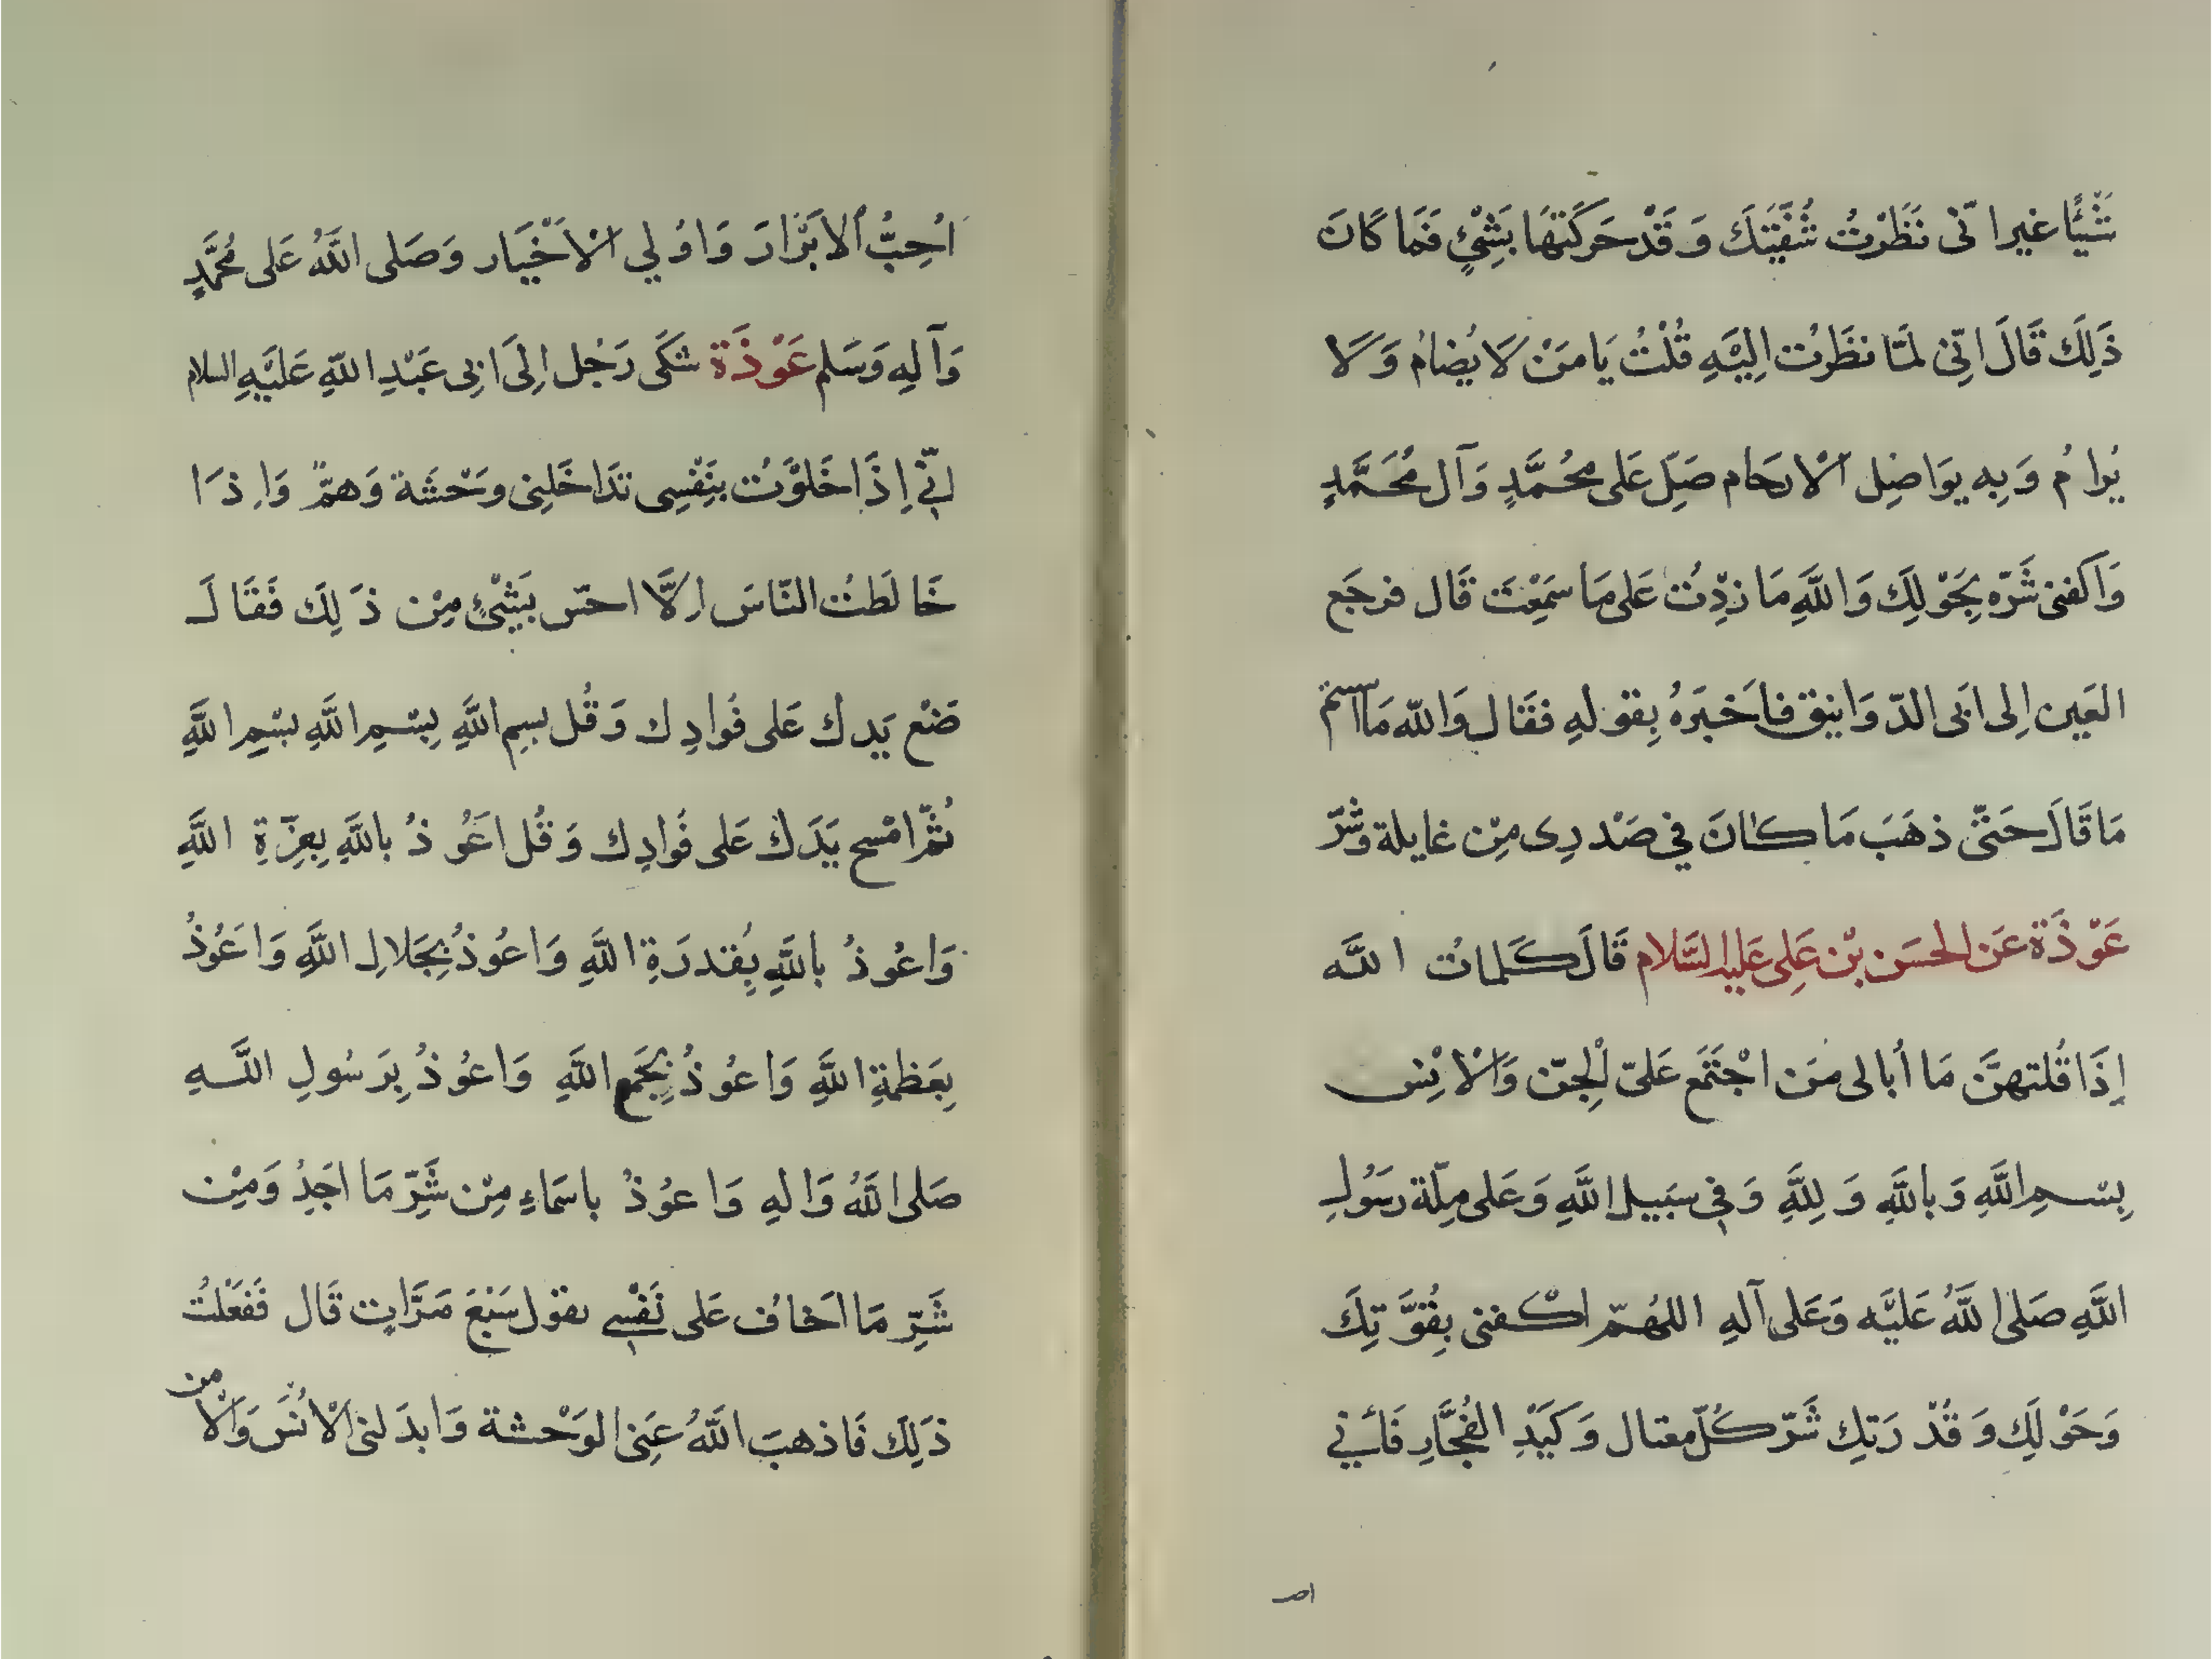 شَيْئًا غير انّى نَظَرْتُ شَفَتَيْكَ وَقَدْ حَرَكَتهَا بَشِئٍ فَمَا كَانَ
ذَلِكَ قَالَ اِنّى لمَّا نظَرْت اِليْهِ قُلْتُ يَا مَنْ لَا يُضامُ وَلَا
يُرامُ وَبِه يوَاصِل الْارحَام صَلِّ عَلى محُمَّدٍ وَآل مُحَمَّدٍ
وَاكفنى شَرّه بِحَوْلِكَ وَاللَّهِ مَا زِدْت عَلى مَا سَمِعْتَ قَال فرجَع
العَين اِلى ابَى الدّوَانيق فاَخبَرَهُ بِقولهِ فقَال وَاللّه مَا استتم
مَا قَالَ حَتىّ ذهَبَ مَا كانَ في صَدْرِى مِنْ غايلة وَشَرّ
عَوْذَة عَن الحسَن بْن عَلِى عَليه السَّلام قَالَ كَلماتُ اللَّه
إِذَا قُلتهنَّ مَا أُبالى مَن اجْتَمَع عَلىّ الْجِنّ وَالْانِس
بِسْمِ اللَّهِ وَباللَّهِ وَلِلَّهِ وَفِي سَبيل اللَّهِ وَعَلى مِلّة رسَوُلِ
اللَّهِ صَلى اللَّهُ عَليْه وَعَلى آلهِ اللهُمّ اكْفنى بِقُوَّتِكَ
وَحَوْلِكَ وَقُدْرَتِكَ شَرّ كُلّ مغتال وَكَيْدِ الفُجَّارِ فَاِنّي
احب
اُحِبُّ الابْرَارَ وَاوُلي الْأَخْيَار وَصَلى اللَّهُ عَلى مُحَمَّدٍ
وَآلِهِ وَسَلم عَوْذَة شكَى رَجُل اِلىَ ابِى عَبْدِ اللّهِ عَليْهِ السلام
اِنّي اِذَا خَلوْتُ بنَفْسِى تدَاخَلنِى وحْشَة وَهمّ وَاِذَا
خَالَطتُ النّاسَ اِلَّا احسّ بَشِئٍ مِنْ ذَلِكَ فَقَالَ
ضَعْ يَدك عَلى فُوادِك وَقُل بسِم اللَّهِ بِسْمِ اللَّهِ بسْمِ اللَّهِ
ثمّ امْسح يَدَكَ عَلى فُوادِك وَقُل اَعُوذُ باللَّهِ بِعِزّةِ اللَّهِ
وَاعُوذُ باللَّهِ بِقدرَةِ اللَّهِ وَاعُوذُ بِجَلالِ اللَّهِ وَاعُوذُ
بِعَظمَةِ اللَّهِ وَاعُوذُ بِجَمع اللَّهِ وَاعُوذُ بِرَسُولِ اللَّهِ
صَلى اللَّهُ وَالهِ وَاعوُذُ باسمَاءِ مِنْ شَرِّ مَا اجَدُِ وَمِنْ
شَرِّ مَا اخَافُ عَلى نَفْسِي ىقول سَبْعَ مَرَّاتٍ قَال فَفعَلتُ
ذلِكَ فَاذهبَ اللَّهُ عَنِى الوَحْشة وَابدَلنى الْانُسَ وَالْا
من